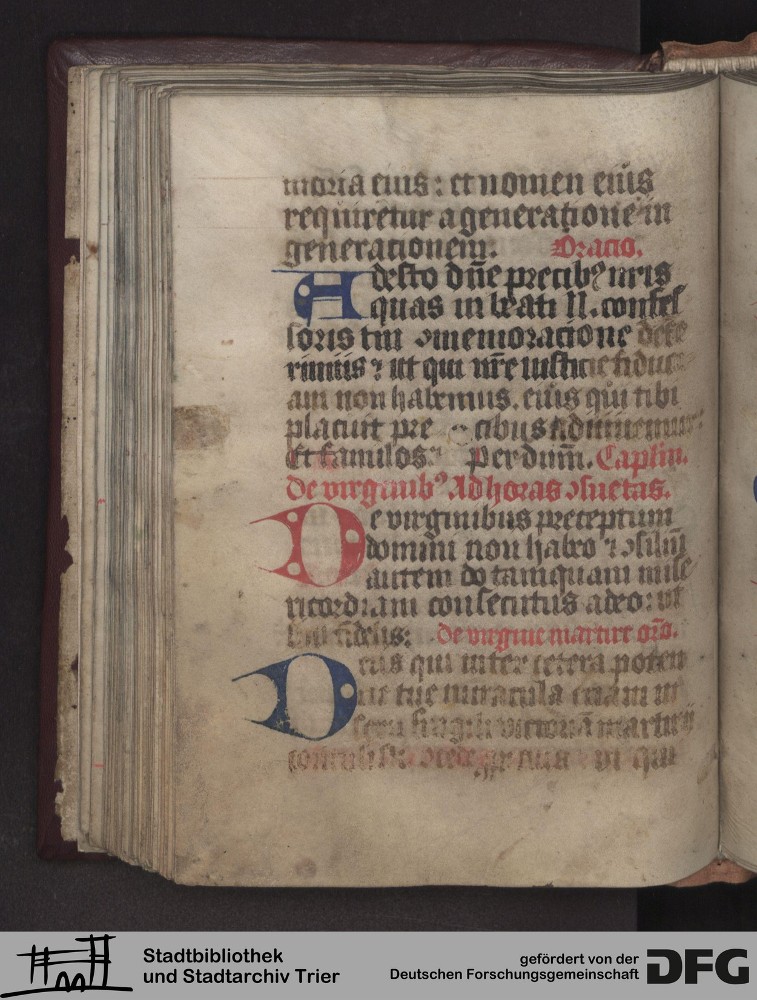 moria eius : et nomen eius
requiretur a generatione in
generationem. Oracio.
Adesto dn̄e precibꝰ nr̄is
quas in beati N. confes
soris tui ɔmemoracione defe
rimus ⁊ ut qui nr̄e iusticie fiduc
am non habemus. eius qui tibi
placuit pre cibus adiuuemur
Et famulos perdum̄. Caplm̄.
De virginibꝰ Ad horas ɔsuetas.
De virginibus preceptum
domini non habeo ⁊ ɔsiliū
autem do tamquam mise
ricordiam consecutus a deo : ut
sim fidelis : De virgine martire or̄o.
Deus qui inter cetera poten
tie tue miracula etiam in
sexu fragili victoriā martirii
contulisti ut qui
Stadtbibliothek
und Stadtarchiv Trier
gefördert von der
Deutschen Forschungsgemeinschaft DFG